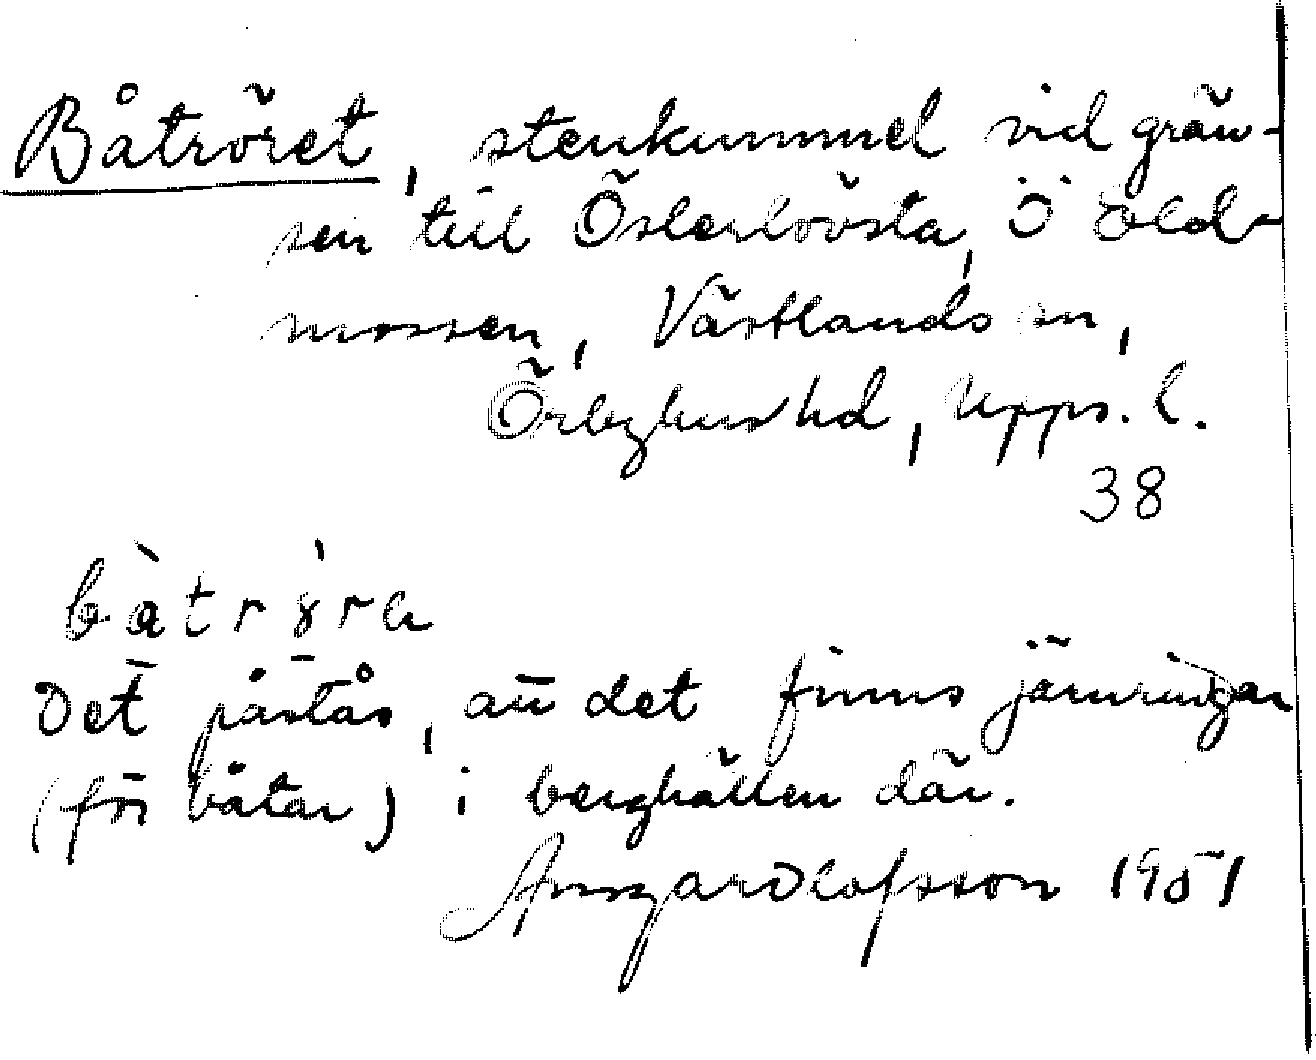 Båtröret, stenkummel vid grän-
sen till Österlövsta, Ö Old-
mossen, Västlands sn,
Örbyhus hd, Upps. l.
38
Det påstås, att det finns järnringar
(för båtar) i berghällen där.
Ansgar Olofsson 1951